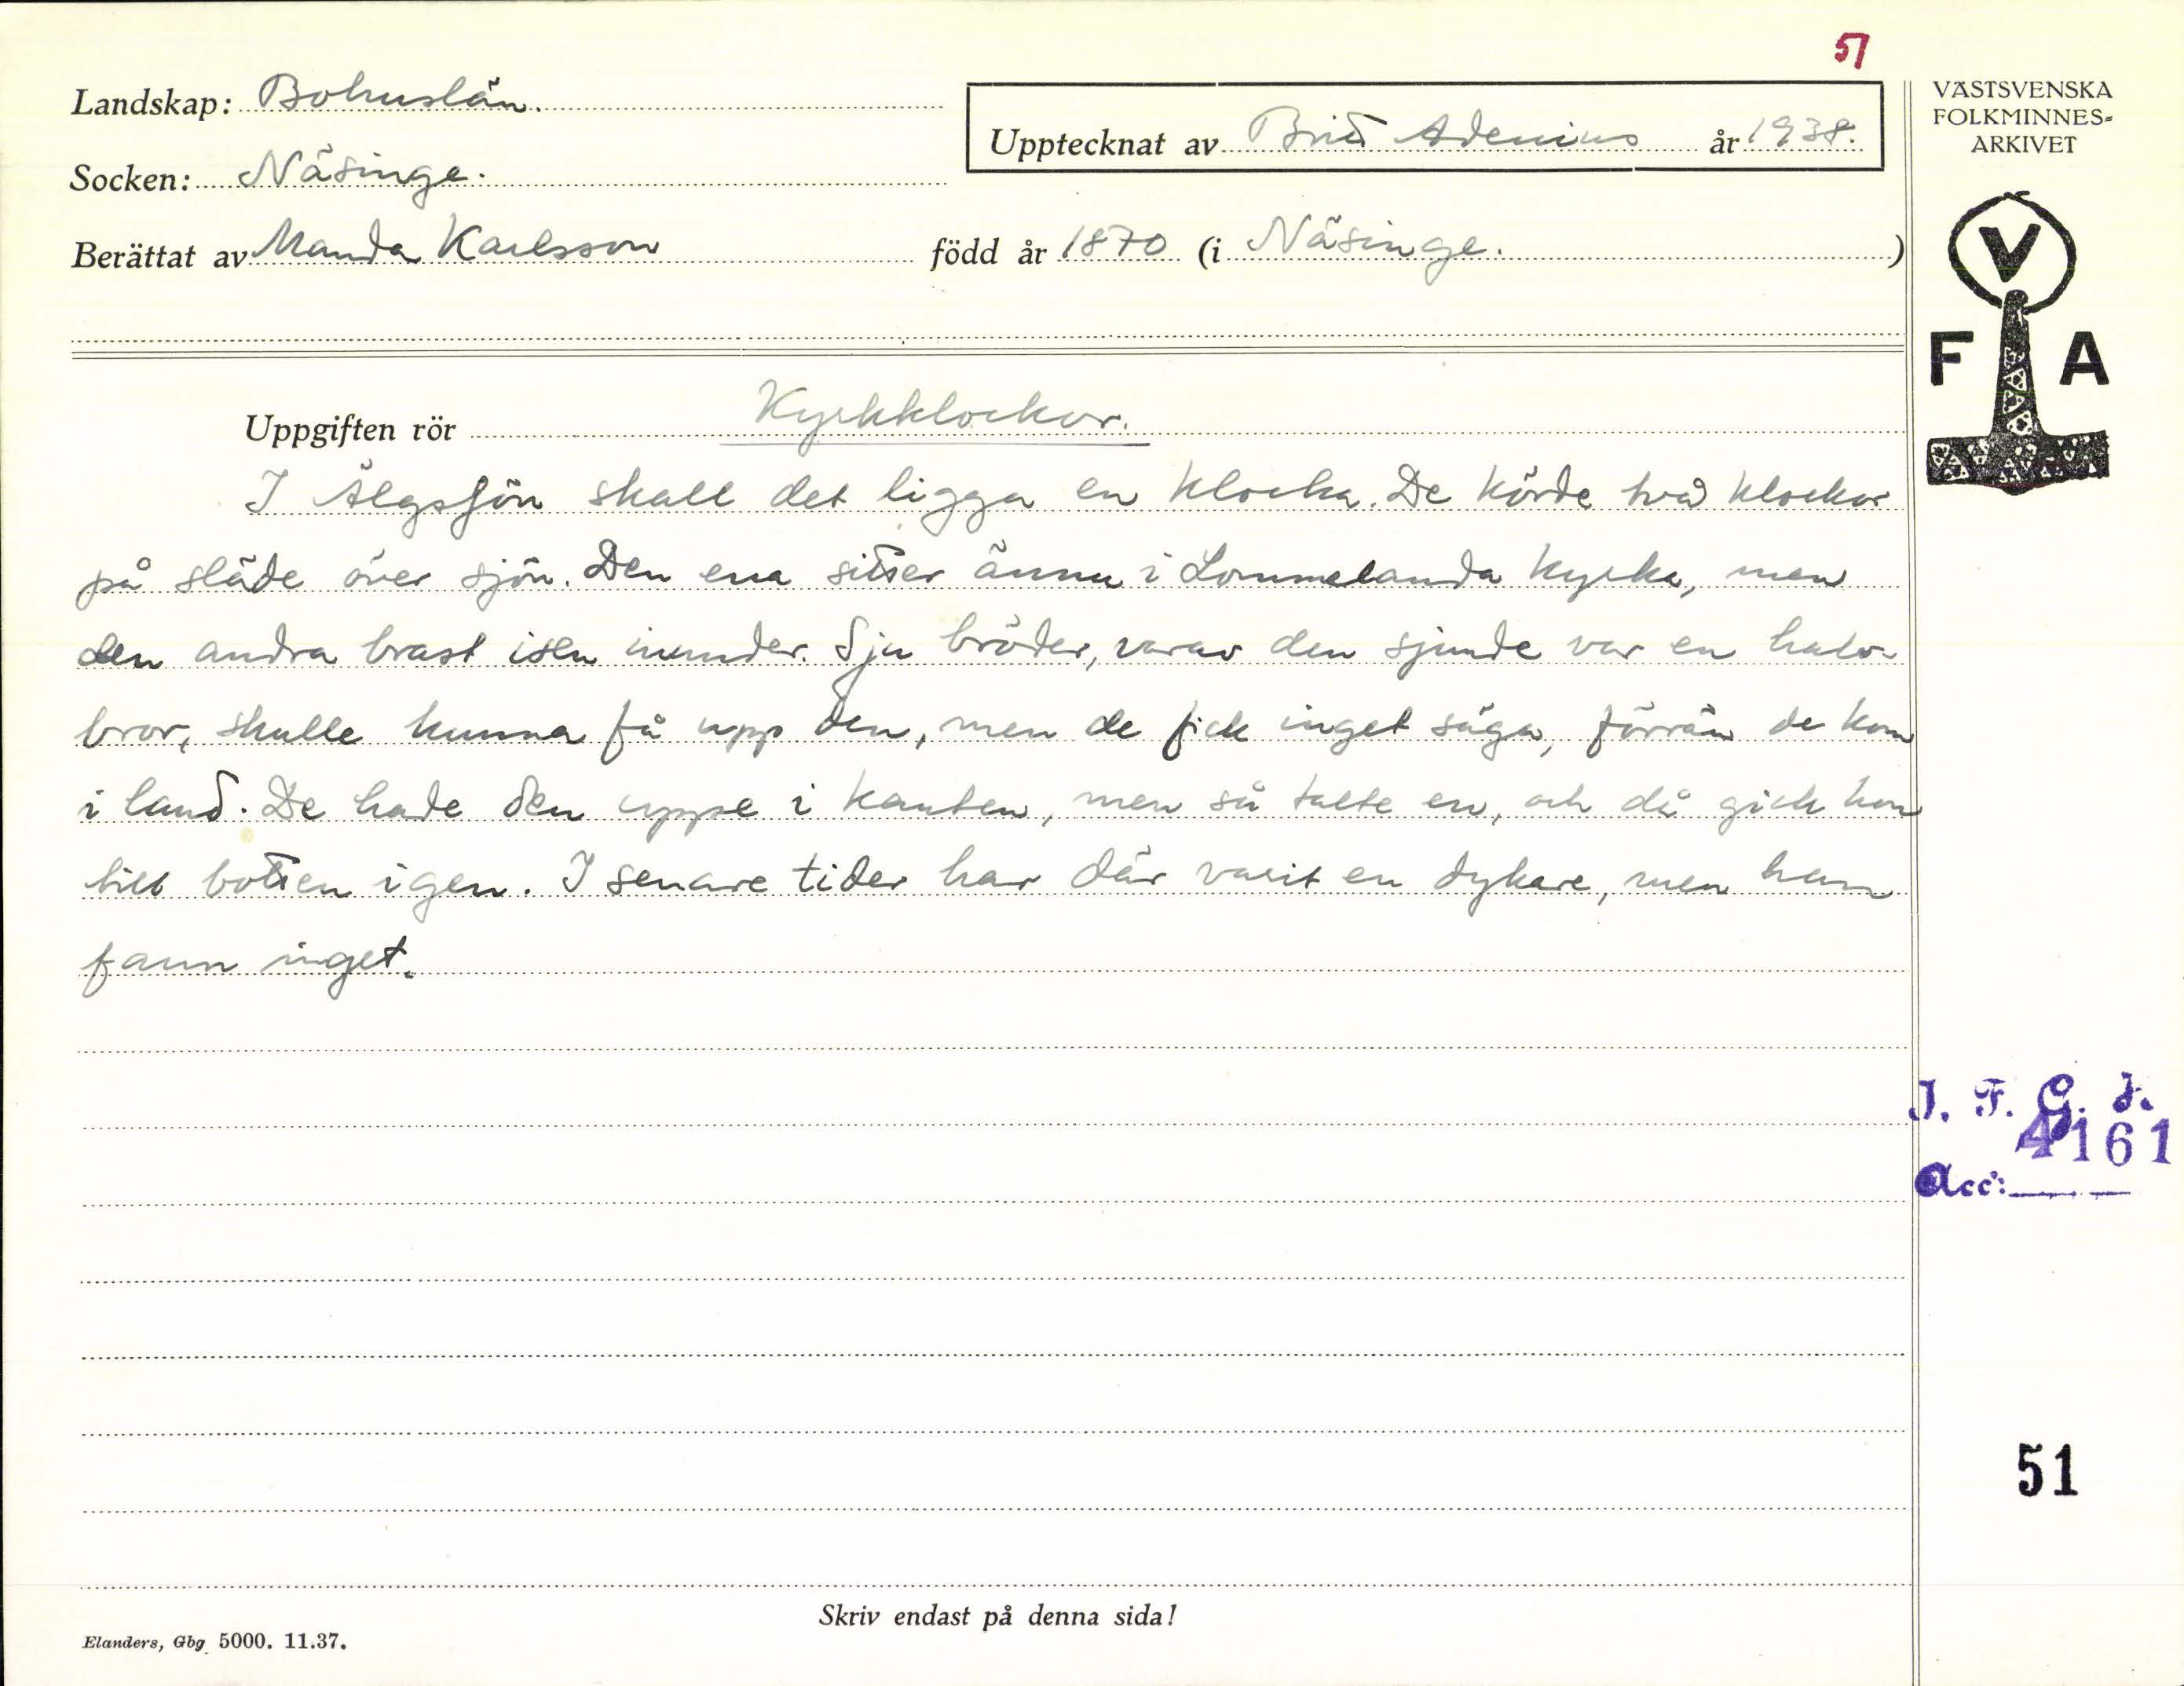 51
Landskap: Bohuslän.
Upptecknat av Britt Adenius år 1938.
Socken: Näsinge.
Berättat av Manda Karlsson född år 1870 (i Näsinge.)
VÄSTSVENSKA
FOLKMINNES-
ARKIVET
V
F A
Uppgiften rör Kyrkklockor.
I Älgsjön skall det ligga en klocka. De körde två klockor
på släde över sjön. Den ena sitter ännu i Lommelanda kyrka, men
den andra brast isen inunder. Sju bröder, varav den sjunde var en halv-
bror, skulle kunna få upp den, men de fick inget säga, förrän de kom
i land. De hade den uppe i kanten, men så talte en, och då gick hon
till botten igen. I senare tider har där varit en dykare, men han
fann inget.
I. F. G. H.
4161
Acc:
51
Skriv endast på denna sida!
Elanders, Gbg 5000. 11.37.